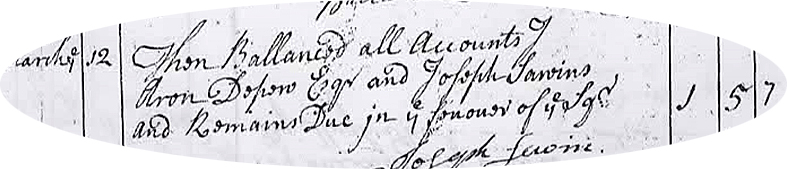 arch ye 12 Then Ballanced all Accounts
Aron Depew Esqr and Joseph Sawins 1 5 7
and Remains Due jn ye fenouer of ye Sqr
Joseph Sewin.